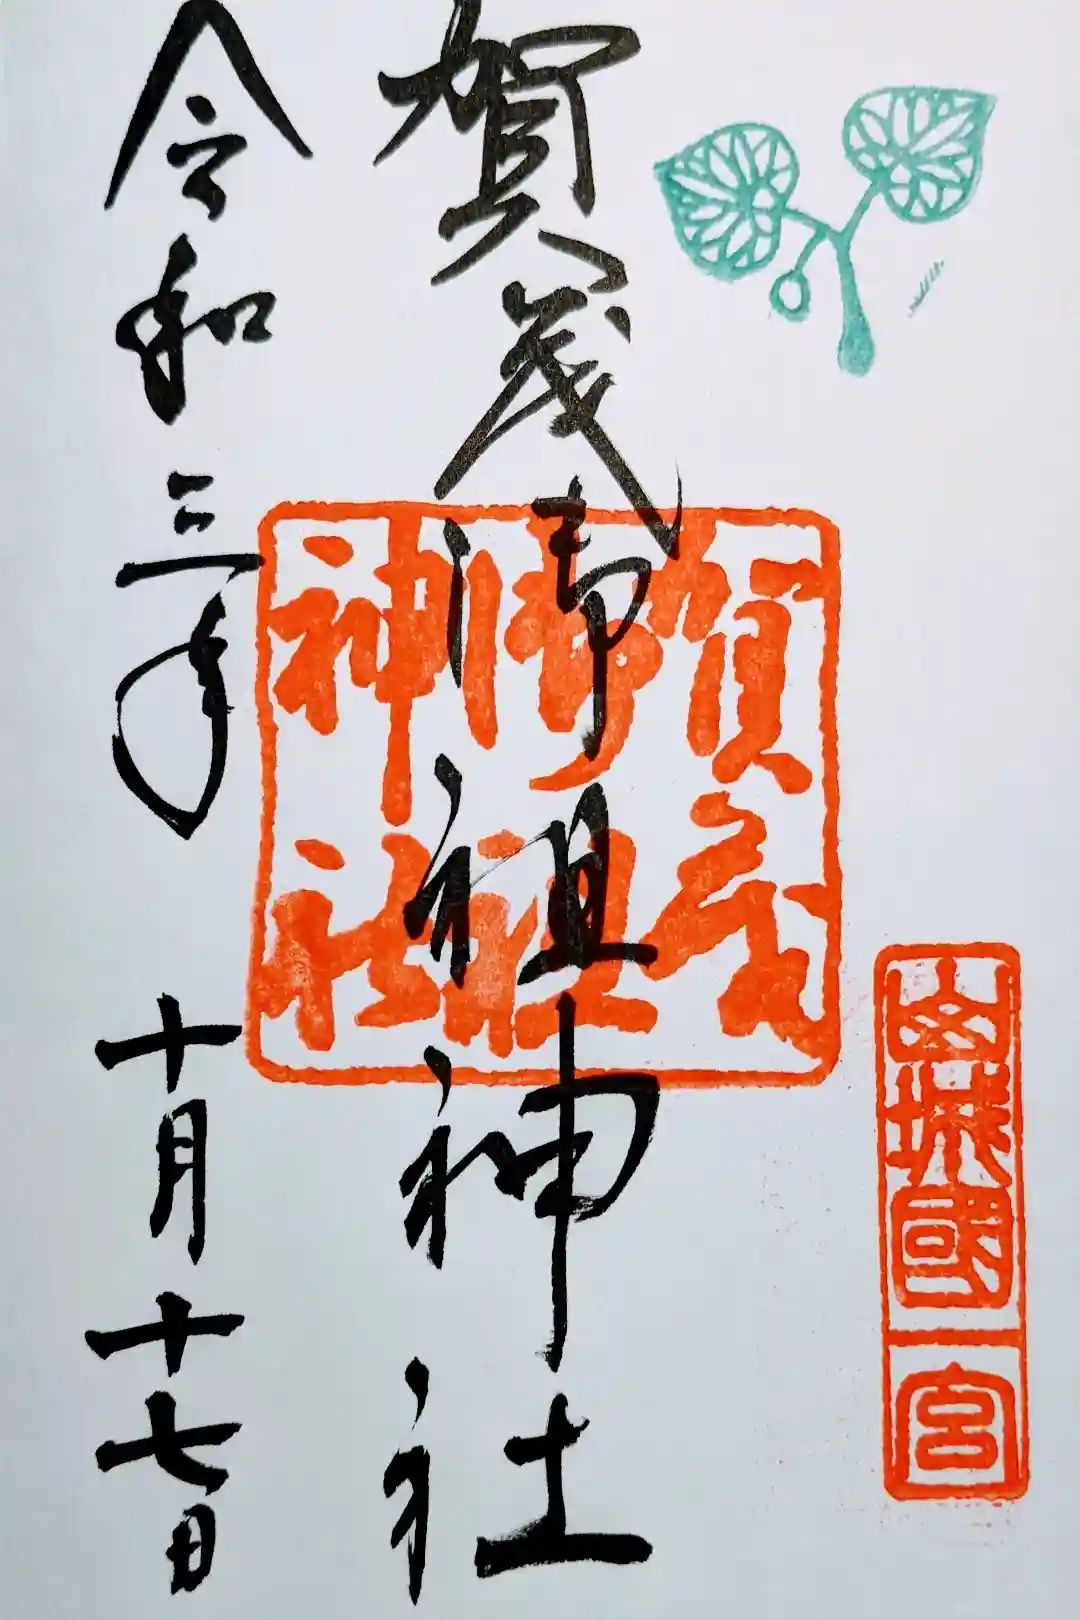 山城國一宮
賀茂御祖神社
賀茂
御祖
神社
令和三年十月十七日